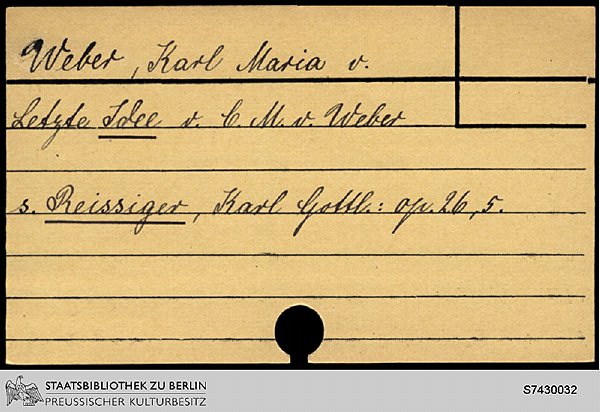 Weber, Karl Maria v.
Letzte Idee v. C. M. v. Weber
s. Reissiger, Karl Gottl.: op. 26, 5.
STAATSBIBLIOTHEK ZU BERLIN
PREUSSISCHER KULTURBESITZ
S7430032